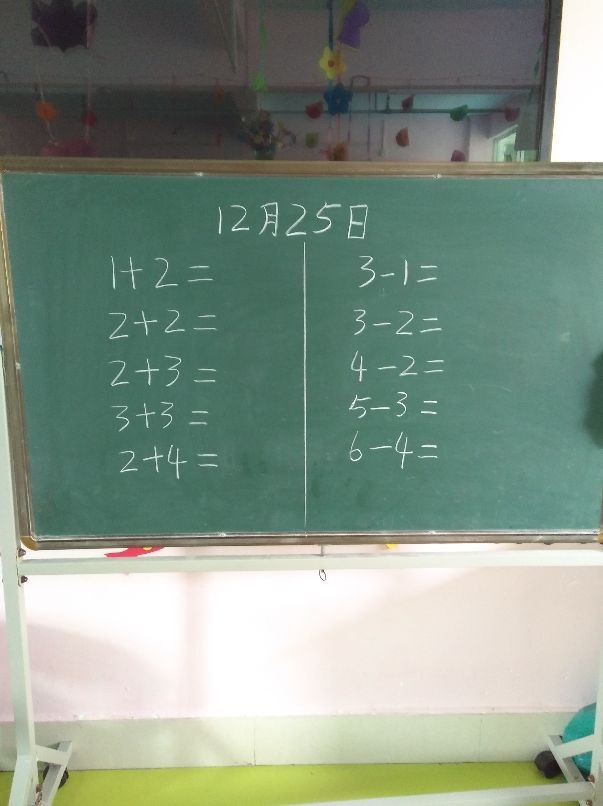 12月25日
1+2=
2+2=
2+3=
3+3=
2+4=
3-1=
3-2=
4-2=
5-3=
6-4=